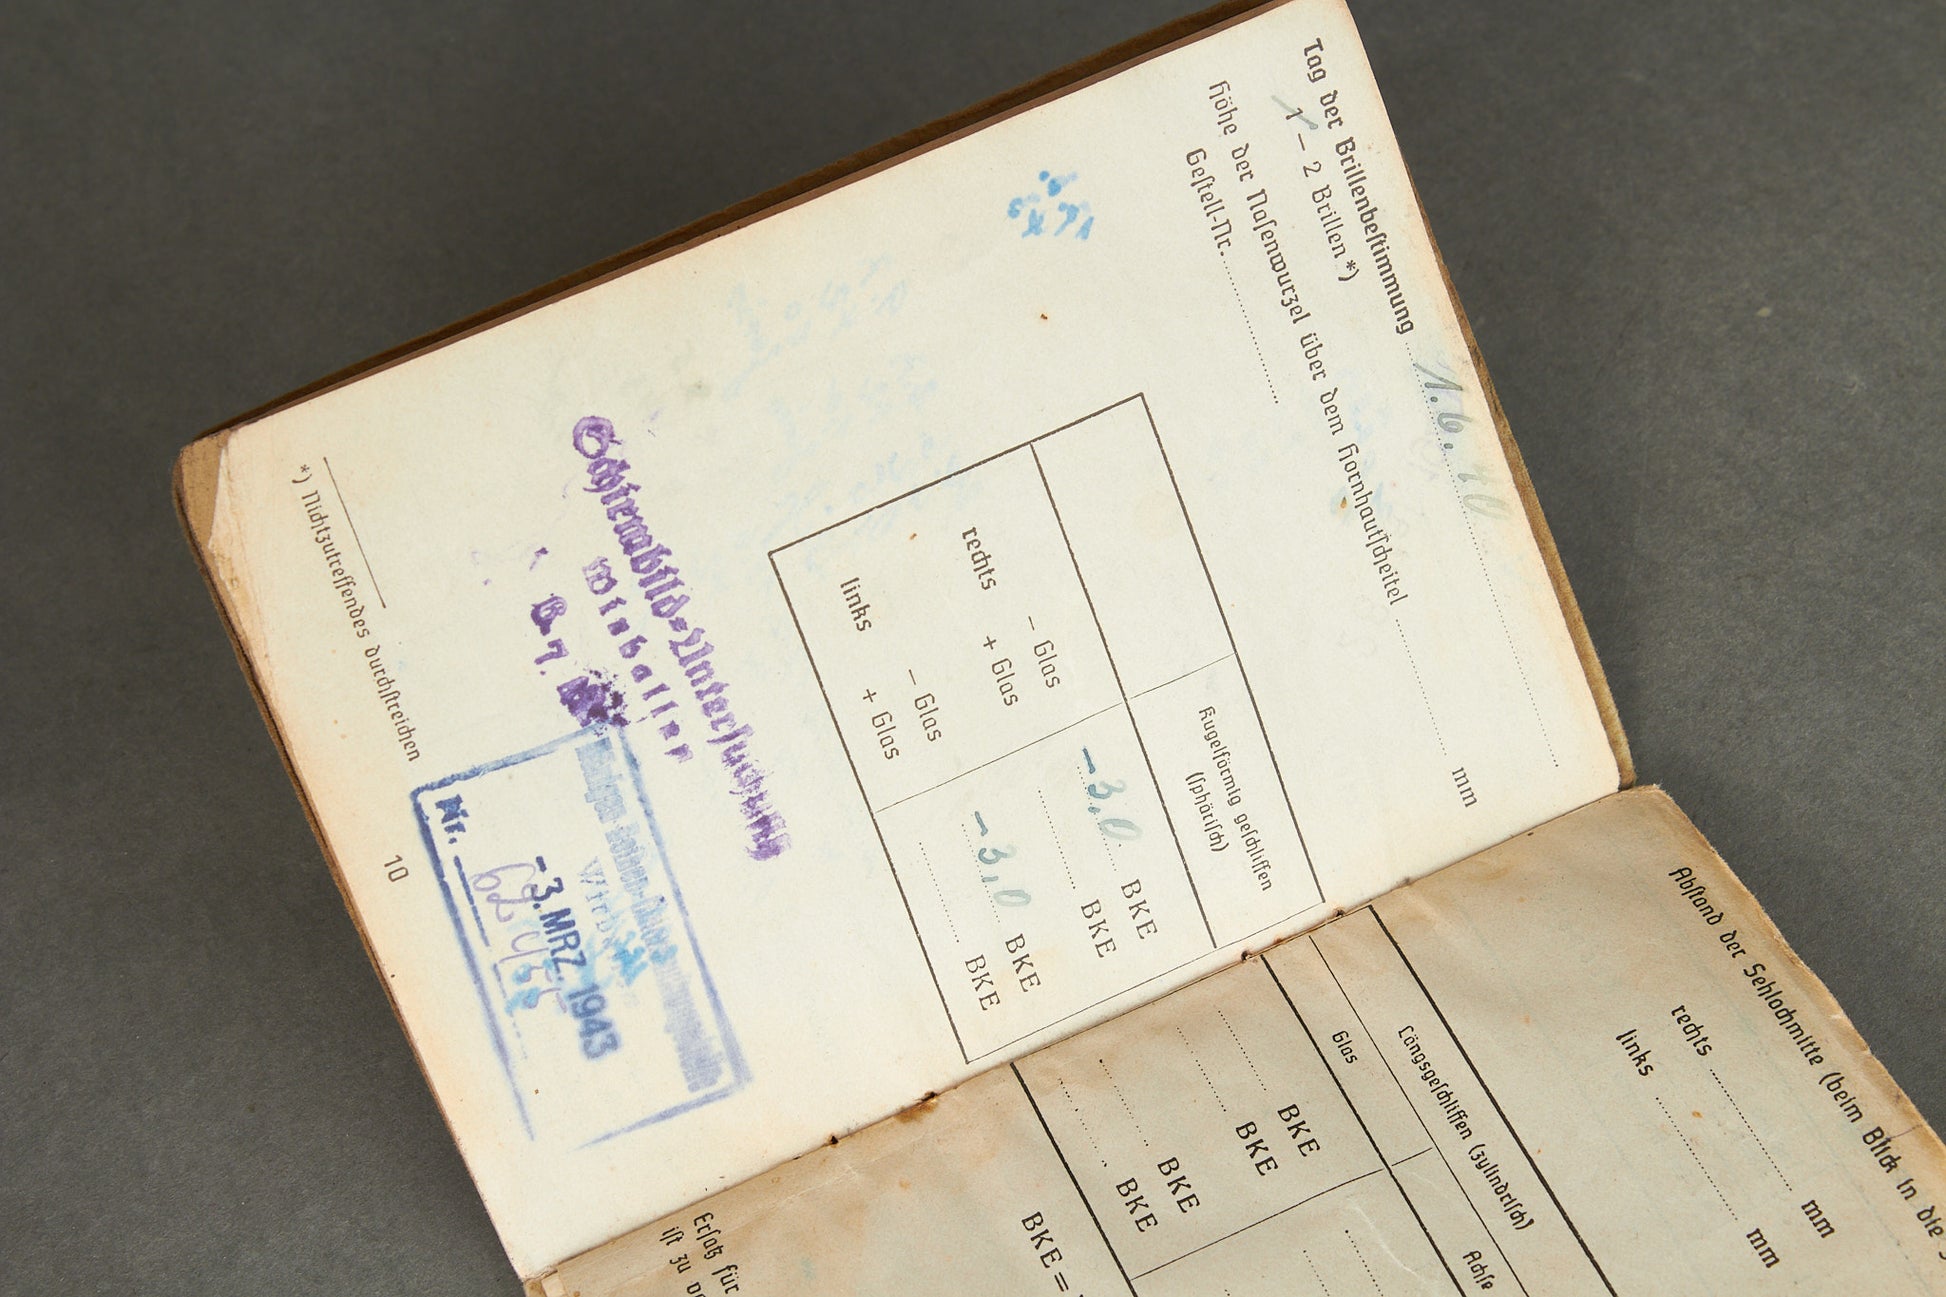 Tag der Brillenbeſtimmung 1.6.40
1 – 2 Brillen *)
Höhe der Naſenwurzel über dem Hornhautſcheitel ........ mm
Geſtell-Nr. ........
Kugelförmig geſchliffen
(ſphäriſch)
rechts – Glas -3,0 BKE
+ Glas ........ BKE
links – Glas -3,0 BKE
+ Glas ........ BKE
Schirmbild-Unterſuchung
Wirballen
-3. MRZ. 1943
Nr.
*) Nichtzutreffendes durchſtreichen
10
Abſtand der Sehlochmitte (beim Blick in die
rechts ........ mm
links ........ mm
Längsgeſchliffen (zylindriſch)
Glas Achſe
........ BKE
........ BKE
........ BKE
........ BKE
BKE =
Erſatz für
iſt zu